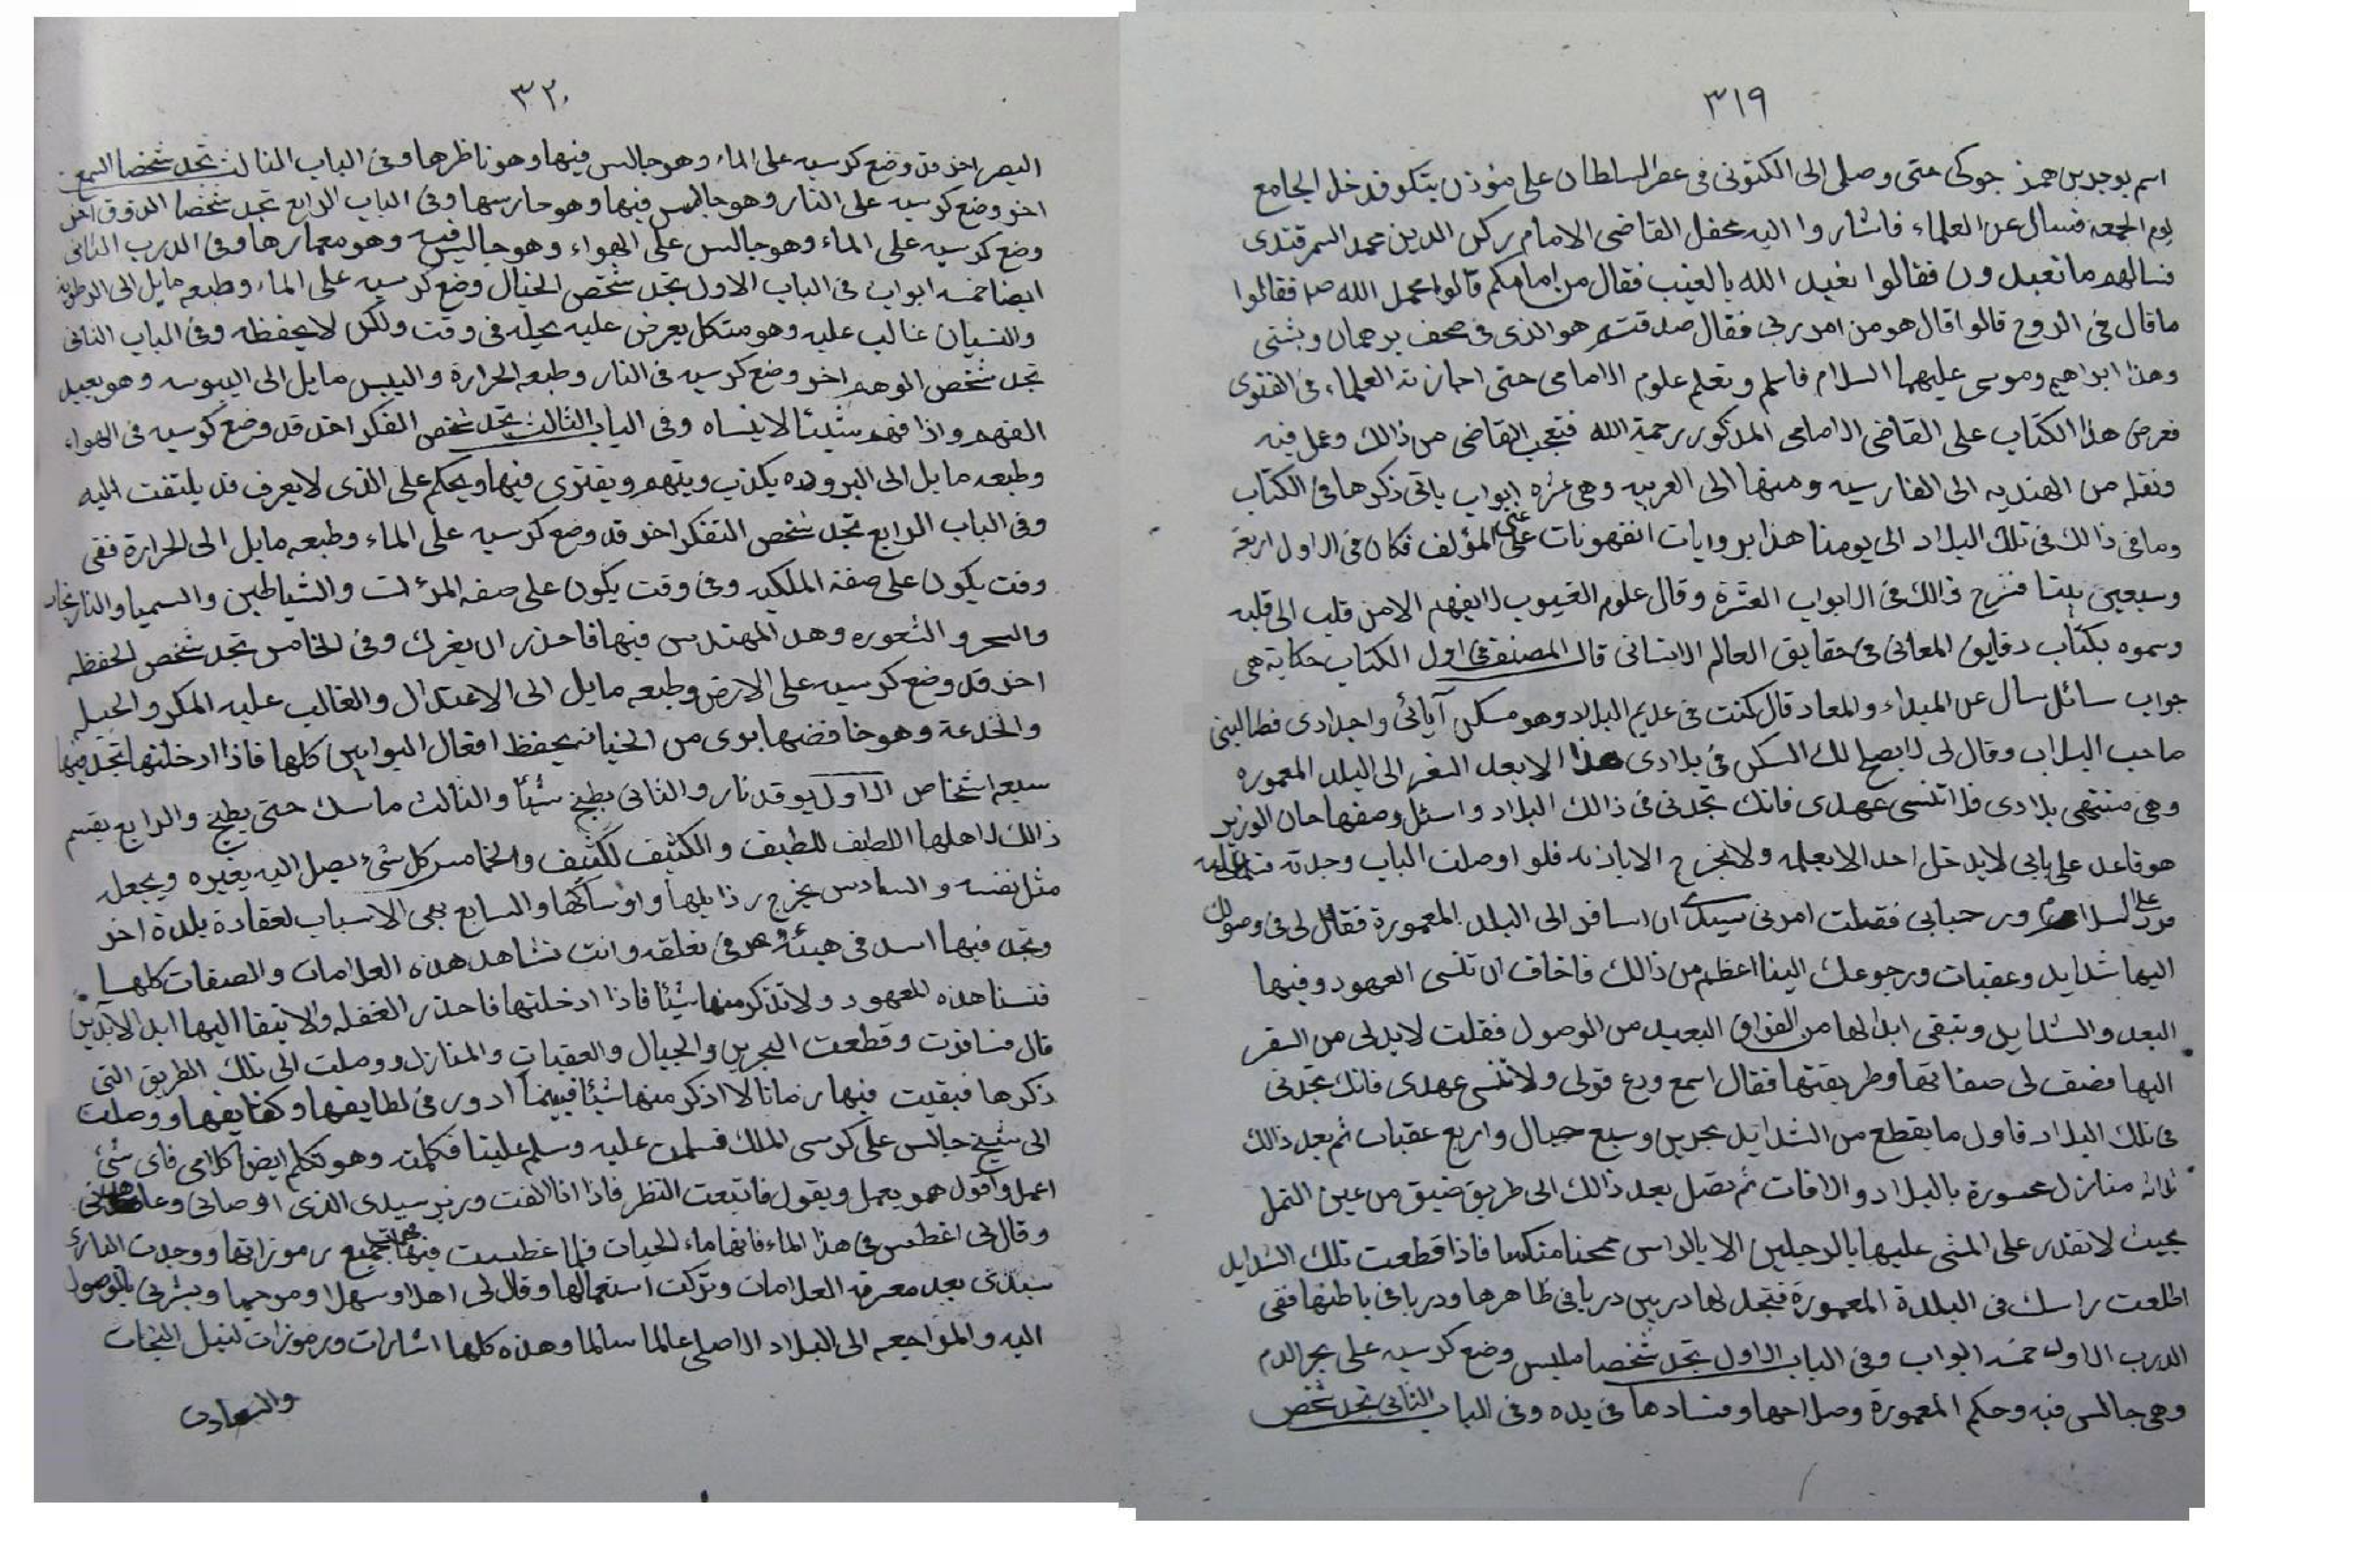 ٣١٩
اسم بوجدبن همز جوكى حتى وصلى الى الكتونى فى عصر السلطان على متوذن يتكو فدخل الجامع
يوم الجمعه فسال عن العلماء فاشاروا اليه محفل القاضى الامام ركن الدين محمد السمرقندى
فسالهم ما تعبدون فقالوا نعبد الله بالغيب فقال من امامكم قالوا محمد الله صم فقالوا
ما قال فى الروح قالوا قال هو من امر ربى فقال صدقتم هو الذى فى صحف برهمان وبشتى
وهذا ابراهيم وموسى عليهما السلام فاسلم وتعلم علوم الامامى حتى اجازته العلماء فى الفتوى
فعرض هذا الكتاب على القاضى الامامى المذكور رحمة الله فتعجب القاضى من ذالك وعمل فيه
ونقله من الهنديه الى الفارسيه ومنها الى العربيه وهى عشره ابواب ياتى ذكرها فى الكتاب
وما فى ذالك فى تلك البلاد الى يومنا هذا بروايات انفهونات على المؤلف فكان فى الاول اربعة
وسبعين بيتا فشرح ذالك فى الابواب العشرة وقال علوم الغيوب لايفهم الا من قلب الى قلبه
وسموه بكتاب دقايق المعانى فى حقايق العالم الانسانى قال المصنف فى اول الكتاب حكاية هى
جواب سائل سال عن المبداء والمعاد قال كنت فى عديم البلاد وهو مسكن آبائى واجدادى فطالبنى
صاحب البلاب وقال لى لايصح لك السكن فى بلادى هذا الا بعد السفر الى البلد المعموره
وهى منتهى بلادى فلا تنسى عهدى فانك تجدنى فى ذالك البلاد واسئل وصفها حان الوزير
هو قاعد على بابى لايدخل احد الا بعلمه ولايخرج الا باذنه فلو اوصلت الباب وجدته فسلمت عليه
فرد على السلام ورحبابى فقلت امرنى سيدك ان اسافر الى البلد المعمورة فقال لى فى وصولك
اليها شدايد وعقبات ورجوعك الينا اعظم من ذالك فاخاف ان تنسى العهود وفيها
البعد والشدايد وتبقى ابدا لها من الفراق البعيد من الوصول فقلت لابد لى من السفر
اليها فصف لى صفاتها وطريقتها فقال اسمع ودع قولى ولا تنسى عهدى فانك تجدنى
فى تلك البلاد فاول ما يقطع من الشدايد بحرين وسبع جبال واربع عقبات ثم بعد ذالك
ثلاثه منازل محسورة بالبلاد والافات ثم تصل بعد ذالك الى طريق ضيق من عين النمل
بحيث لا تقدر على المشى عليها بالرجلين الا بالراس ممحنا منكسا فاذا قطعت تلك الشدايد
اطلعت راسك فى البلدة المعمورة فتجد لها دربين دربا فى ظاهرها ودربا فى باطنها ففى
الدرب الاول خمسه ابواب وفى الباب الاول تجد شخصا مليس وضع كرسيه على بحر الدم
وهى جالس فيه وحكم المعمورة وصلاحها وفسادها فى يده وفى الباب الثانى تجد شخص
٣٢٠
البصر اخر قد وضع كرسيه على الماء وهو جالس فيها وهو ناظرها وفى الباب الثالث تجد شخصا السمع
اخر وضع كرسيه على النار وهو جالس فيها وهو حارسها وفى الباب الرابع تجد شخصا الذوق اخر
وضع كرسيه على الماء وهو جالس على الهواء وهو جاليس فيه وهو معمارها وفى الدرب الثانى
ايضا خمسه ابواب فى الباب الاول تجد شخص الخيال وضع كرسيه على الماء وطبعه مايل الى الرطوبه
والنسيان غالب عليه وهو متكل يعرض عليه بحيله فى وقت ولكن لايحفظه وفى الباب الثانى
تجد شخص الوهم اخر وضع كرسيه فى النار وطبعه الحرارة واليبس مايل الى اليبوسه وهو بعيد
الفهم واذا فهم شيئا لاينساه وفى الباب الثالث تجد شخص الفكر اخر قد وضع كرسيه فى الهواء
وطبعه مايل الى البروده يكذب ويتهم ويفترى فيها ويحكم على الذى لايعرف قد يلتفت اليه
وفى الباب الرابع تجد شخص التفكر اخر قد وضع كرسيه على الماء وطبعه مايل الى الحرارة ففى
وقت يكون على صفة الملكيه وفى وقت يكون على صفه المرءلت والشياطين والسميا والنارنجات
والسحر والشعوره وهد المهندس فيها فاحذر ان يغرك وفى الخامس تجد شخص الحفظه
اخر قد وضع كرسيه على الارض وطبعه مايل الى الاعتدال والغالب عليه المكر والحيله
والخدعة وهو خافضها بدى من الخيانه يحفظ افعال البوابين كلها فاذا ادخلتها تجد فيها
سبعه اشخاص الاول يوقد نار والثانى يطبخ شيئا والثالث ماسك حتى يطبخ والرابع يقسم
ذالك لاهلها اللطيف للطيف والكثيف لكثيف والخامس كل شئ يصل اليه يغيره ويجعله
مثل نفسه والسادس يخرج رذايلها واوساكها والسابع بعى الاسباب لعقادة بلدة اخر
وتجد فيها اسد فى هيئة وهر فى نعلقه وانت تشاهد هذه العلامات والصفات كلها
فتسنا هذه العهود ولا تذكر منها شيئا فاذا ادخلتها فاحذر الغفله والا تبقا اليها ابد الابدين
قال فسافرت وقطعت البحرين والجبال والعقبات والمنازل ووصلت الى تلك الطريق التى
ذكرها فبقيت فيها زمانا لا اذكر منها شيئا فبينما ادور فى لطايفها وكفايفها ووصلت
الى شيخ جالس على كرسى الملك فسلمت عليه وسلم علينا فكلمته وهو تكلم ايضا كلامى فاى شئ
اعمل واقول هو يعمل ويقول فاتبعت النظر فاذا انا الفت وزير سيدى الذى اوصانى وعاهدنى
وقال لى اغطس فى هذا الماء فانها ماء الحيات فلما غطست فيها فهمت جميع رموزاتها ووجدت النارئ
سيدى بعد معرفه العلامات وتركت استعمالها وقال لى اهلا وسهلا ومرحبا وبشرنى بالوصول
اليه والمراجعه الى البلاد الاصلى عالما سالما وهذه كلها اشارات ورموزات لنيل النجات
والسعادت